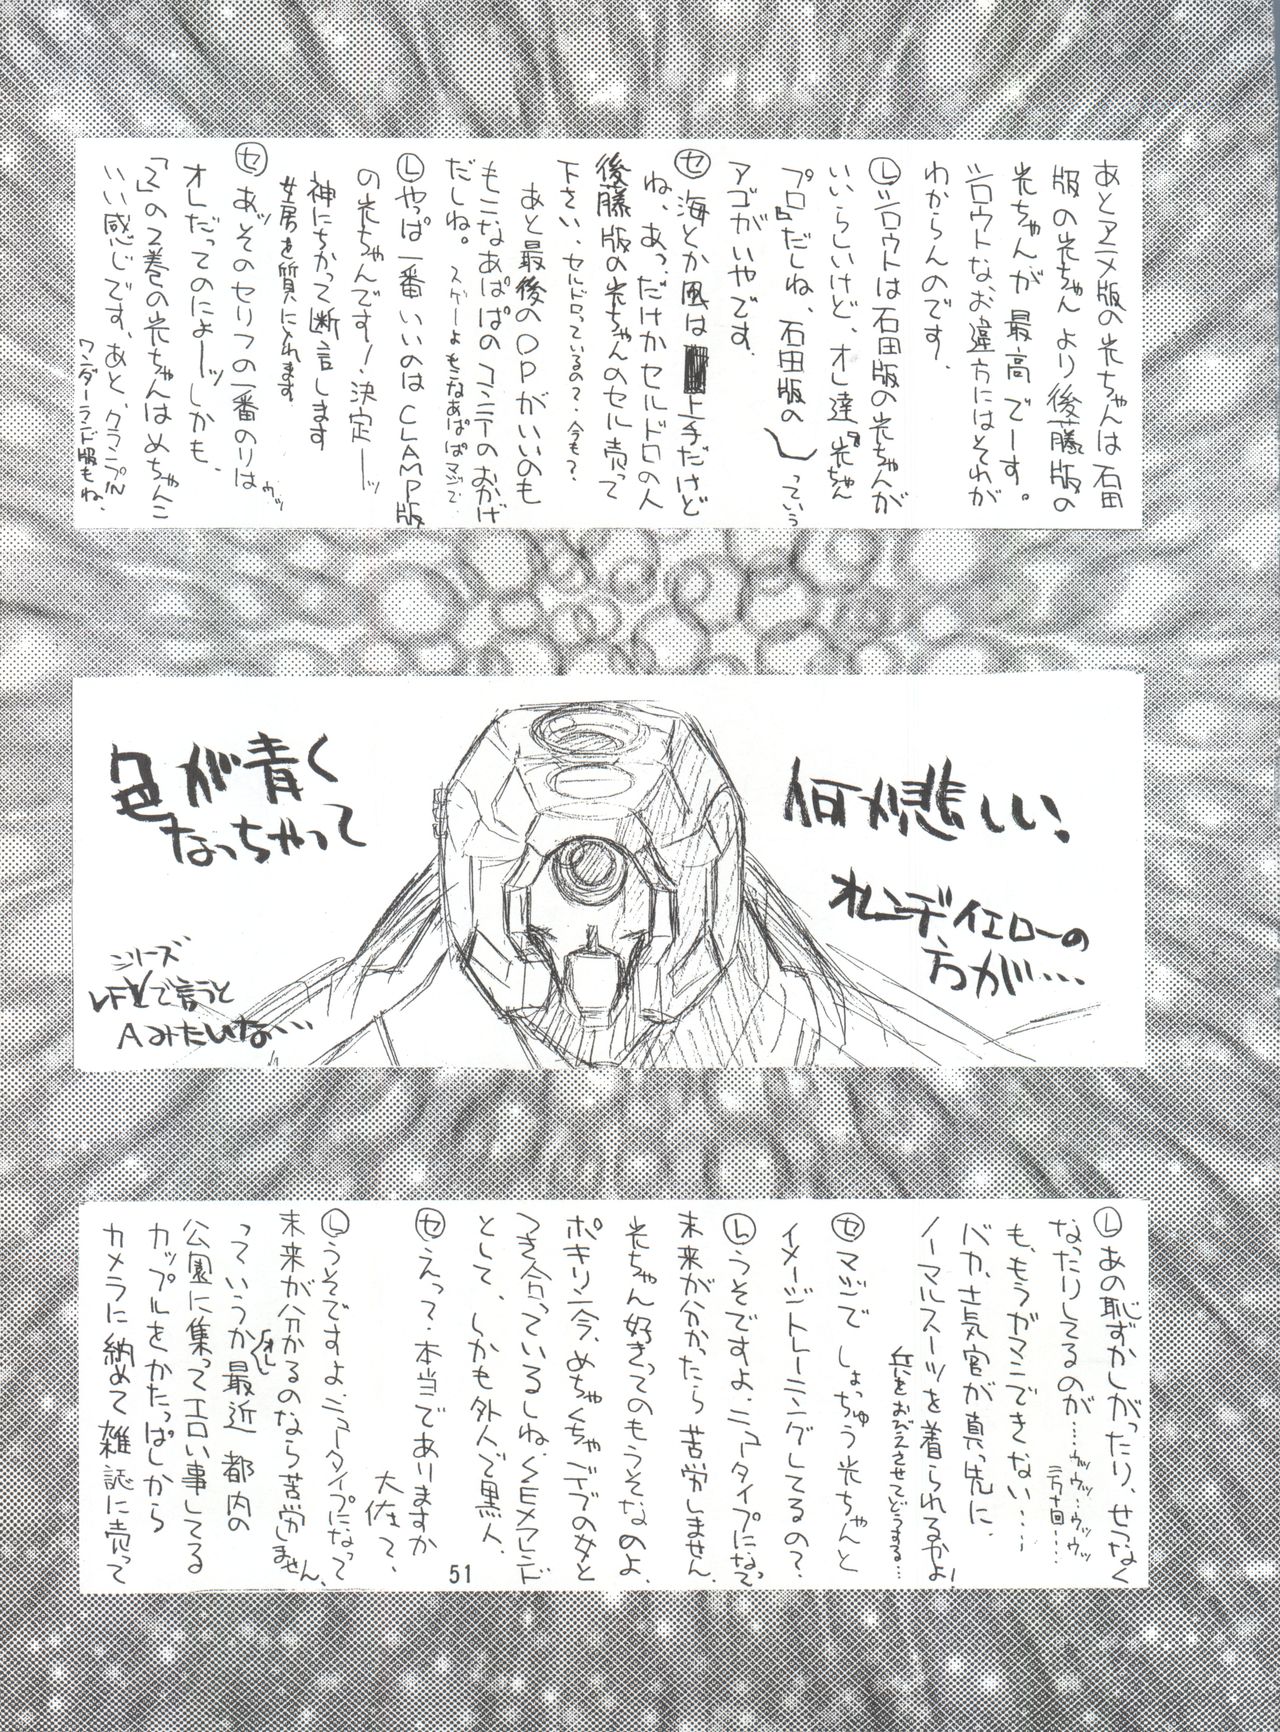 あとアニメ版の光ちゃんは石田
版の光ちゃんより後藤版の
光ちゃんが最高でーす。
シロウトなお違方にはそれが
わからんのです。
Ⓛシロウトは石田版の光ちゃんが
いいらしいけど、オレ達『光ちゃん
プロ』だしね、石田版の
っていう
アゴがいやです。
㋝海とか風は上手だけど
ね、あっ、だけかセルドロの人
後藤版の光ちゃんのセル売って
下さい、セルドロっているの?今も?
あと最後のOPがいいのも
もこなあぱぱのコンテのおかげ
だしね。スゲーよもこなあぱぱマジで
Ⓛやっぱ一番いいのはCLAMP版
の光ちゃんです!決定ーッ
神にちかって断言します
女房を質に入れます
㋝あッそのセリフの一番のりは
ウッ
オレだってのによーッしかも、
「2」の2巻の光ちゃんはめちゃんこ
いい感じです、あと、クランプIN
ワンダーランド版もね、
何か悲しい!
オレンヂイエローの
方が…
色が青く
なっちゃって
シリーズ
LFLで言うと
Aみたいな…
Ⓛあの恥ずかしがったり、せつなく
なったりしてるのが…ウッウッ…ウッウッ
二万十回…
も、もうガマンできない…
バカ、士気官が真っ先に、
ノーマルスーツを着られるかよ!
兵をおびえさせてどうする…
㋝マジでしょっちゅう光ちゃんと
イメージトレーニングしてるの?
Ⓛうそですよ、ニュータイプになって
未来が分かったら苦労しません
光ちゃん好きってのもうそなのよ、
ポキリン今、めちゃくちゃデブの女と
つき合っているしね、SEXフレンド
として、しかも外人で黒人、
㋝えっ?本当でありますか
大佐?
Ⓛうそですよ、ニュータイプになって
未来が分かるのなら苦労しません、
っていうか最近都内の
(オレ)
公園に集ってエロい事してる
カップルをかたっぱしから
カメラに納めて雑誌に売って
51